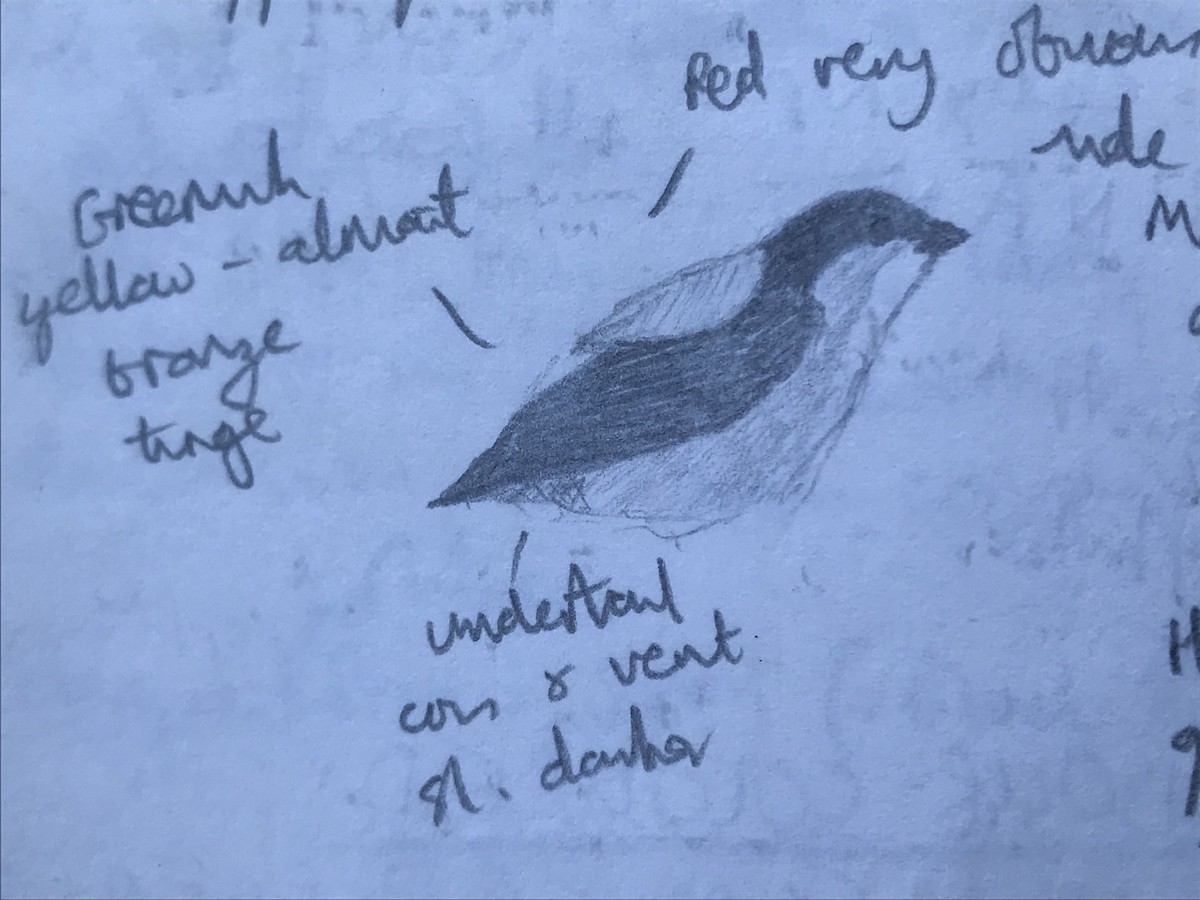 Red very obvious
Greenish
yellow - almost
bronze
tinge
undertail
covs & vent
sl. darker